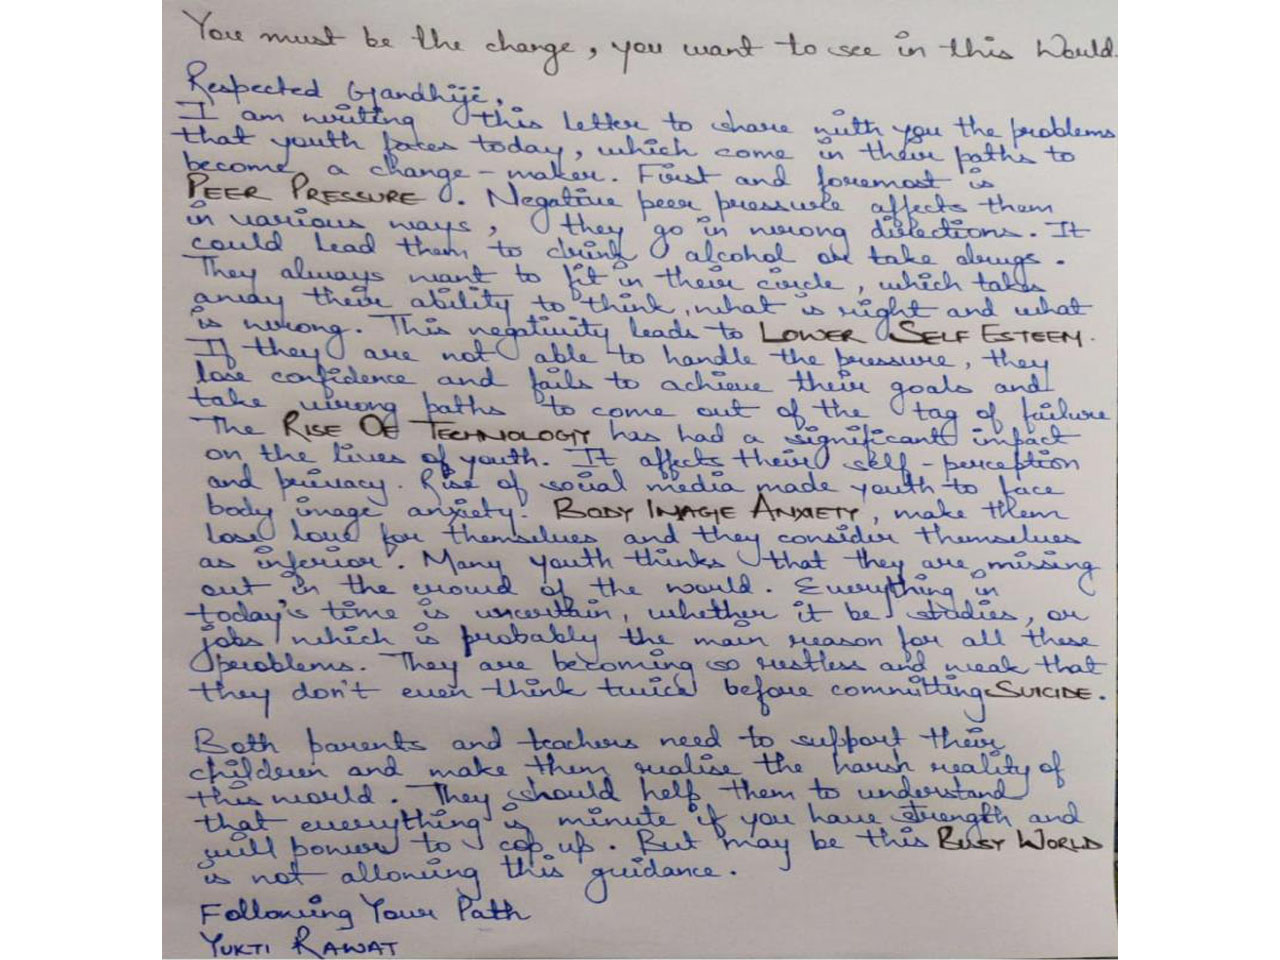 You must be the change, you want to see in this World.
Respected Gandhiji,
I am writing this letter to share with you the problems
that youth faces today, which come in their paths to
become a change-maker. First and foremost is
PEER PRESSURE. Negative peer pressure affects them
in various ways, they go in wrong directions. It
could lead them to drink alcohol or take drugs.
They always want to fit in their circle, which takes
away their ability to think, what is right and what
is wrong. This negativity leads to LOWER SELF ESTEEM.
If they are not able to handle the pressure, they
lose confidence and fails to achieve their goals and
take wrong paths to come out of the tag of failure
The RISE OF TECHNOLOGY has had a significant impact
on the lives of youth. It affects their self-perception
and privacy. Rise of social media made youth to face
body image anxiety. BODY IMAGE ANXIETY, make them
lose love for themselves and they consider themselves
as inferior. Many youth thinks that they are missing
out in the crowd of the world. Everything in
today's time is uncertain, whether it be studies, or
jobs, which is probably the main reason for all these
problems. They are becoming so restless and weak that
they don't even think twice before committing SUICIDE.
Both parents and teachers need to support their
children and make them realise the harsh reality of
this world. They should help them to understand
that everything is minute if you have strength and
will power to cop up. But may be this BUSY WORLD
is not allowing this guidance.
Following Your Path
YUKTI RAWAT